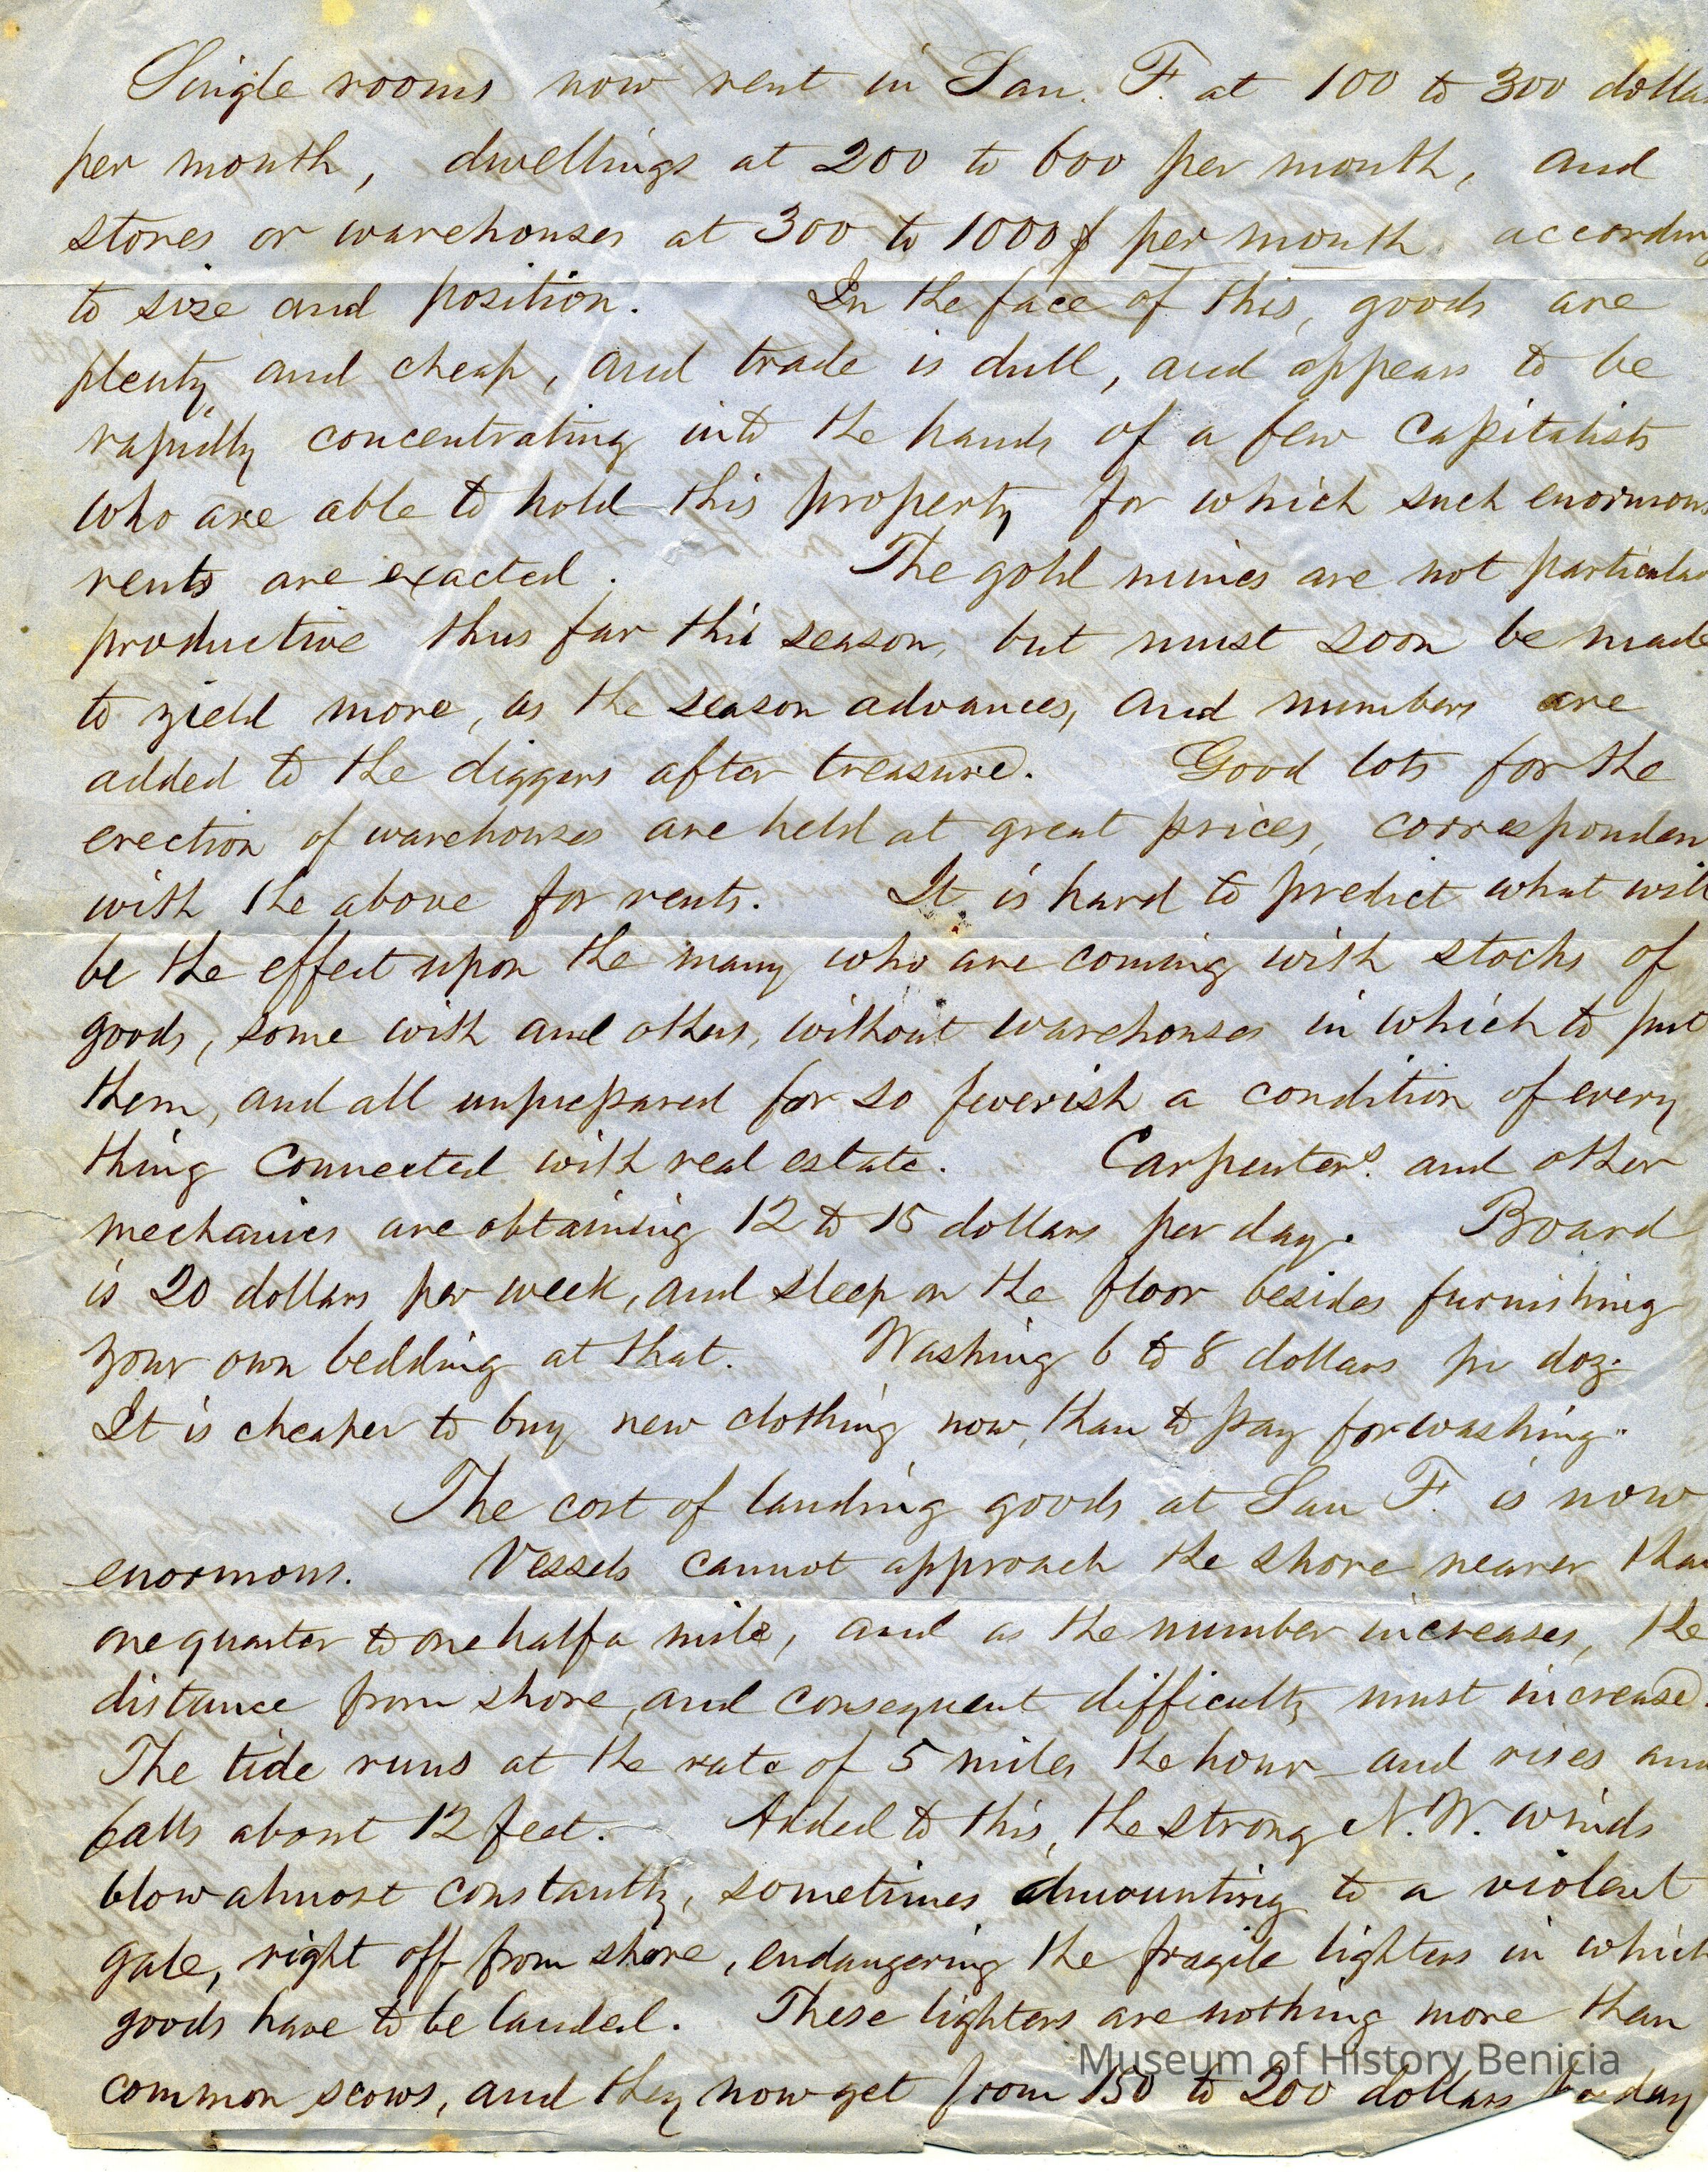 Single rooms now rent in San. F. at 100 to 300 dolla
per month, dwellings at 200 to 600 per month, and
stores or warehouses at 300 to 1000$ per month. accordin
to size and position. In the face of this, goods are
plenty and cheap, and trade is dull, and appears to be
rapidly concentrating into the hands of a few capitalists
who are able to hold this property for which such enormous
rents are exacted. The gold mines are not particular
productive thus far this season, but must soon be made
to yield more, as the season advances, and numbers are
added to the diggers after treasure. Good lots for the
erection of warehouses are held at great prices, corresponden
with the above for rents. It is hard to predict what will
be the effect upon the many who are coming with stocks of
goods, some with and others, without warehouses in which to put
them, and all unprepared for so feverish a condition of every
thing connected with real estate. Carpenters. and other
mechanics are obtaining 12 to 15 dollars per day. Board
is 20 dollars per week, and sleep on the floor besides furnishing
your own bedding at that. Washing 6 to 8 dollars pr doz.
It is cheaper to buy new clothing now, than to pay for washing.
The cost of landing goods at San F. is now
enormous. Vessels cannot approach the shore nearer tha
one quarter to one half a mile, and as the number increases, the
distance from shore, and consequent difficulty must increase.
The tide runs at the rate of 5 miles the hour and rises and
falls about 12 feet. Added to this, the strong N. W. winds
blow almost constantly, sometimes amounting to a violent
gale, right off from shore, endangering the fragile lighters in which
goods have to be landed. These lighters are nothing more than
common scows, and they now get from 150 to 200 dollars day
Museum of History Benicia